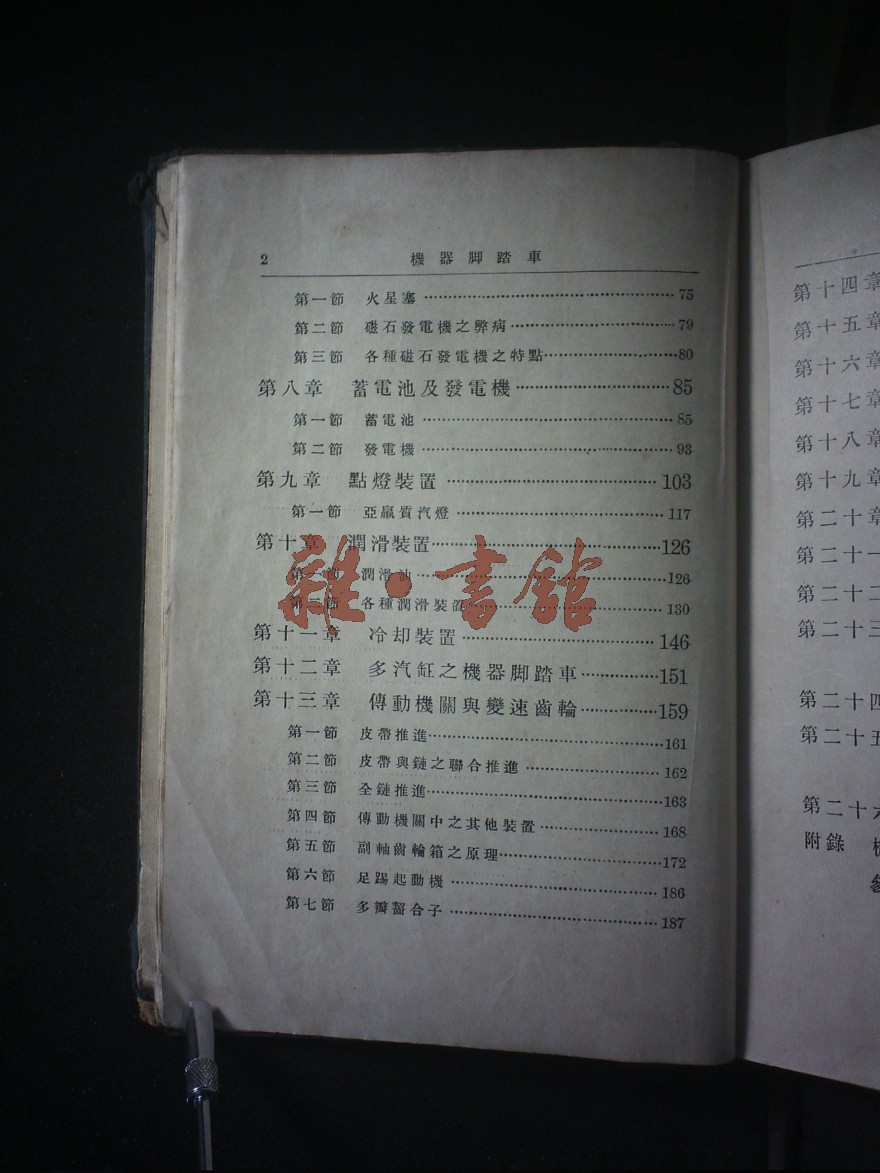 2 機器脚踏車
第一節 火星塞 75
第二節 磁石發電機之弊病 79
第三節 各種磁石發電機之特點 80
第八章 蓄電池及發電機 85
第一節 蓄電池 85
第二節 發電機 93
第九章 點燈裝置 103
第一節 亞羸質汽燈 117
第十章 潤滑裝置 126
第一節 潤滑油 126
第二節 各種潤滑裝置 130
第十一章 冷却裝置 146
第十二章 多汽缸之機器脚踏車 151
第十三章 傳動機關與變速齒輪 159
第一節 皮帶推進 161
第二節 皮帶與鏈之聯合推進 162
第三節 全鏈推進 163
第四節 傳動機關中之其他裝置 168
第五節 副軸齒輪箱之原理 172
第六節 足踢起動機 186
第七節 多瓣齧合子 187
雜·書館
第十四章
第十五章
第十六章
第十七章
第十八章
第十九章
第二十章
第二十一
第二十二
第二十三
第二十四
第二十五
第二十六
附錄